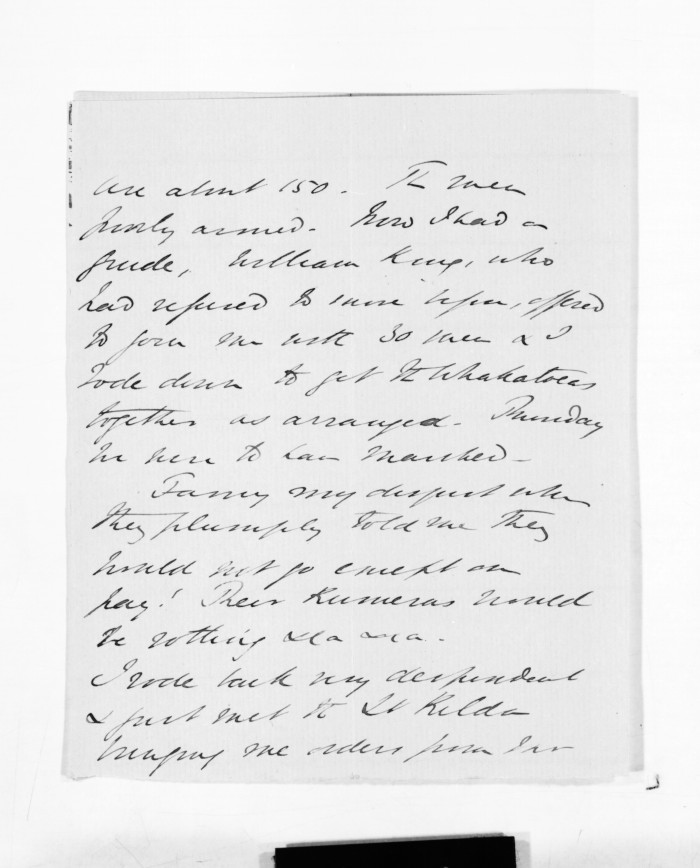 are about 150. The men
poorly armed. Now I had a
guide, William King, who
had refused to move before, offered
to join me with 30 men & I
rode down to get the Whakatoeas
together as arranged. Thursday
we were to have marched -
Fancy my disgust when
they plumply told me they
would not go except on
pay! Their Kumeras would
be rotting &ca &ca.
I rode back very despondent
& just met the St Kilda
bringing me orders from